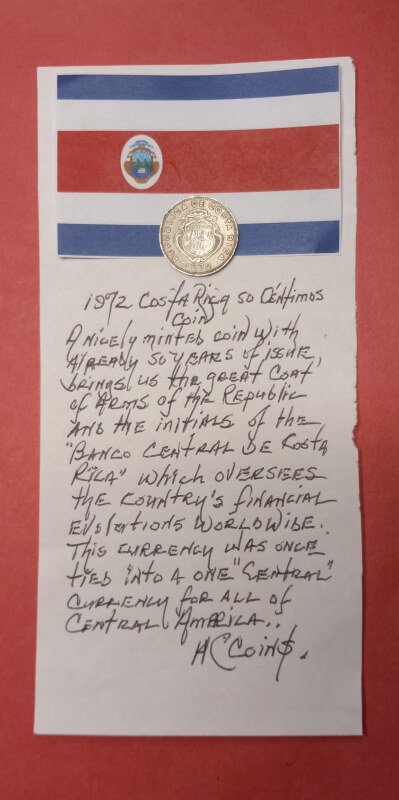 REPUBLICA DE COSTA RICA
1972 Costa Rica 50 Céntimos
Coin
A nicely minted coin with
Already 50 years of issue,
brings us the great Coat
of Arms of the Republic
and the initials of the
"Banco Central de Costa
Rica" which oversees
the country's financial
worldwide.
This currency was once
tied into a one "Central"
currency for all of
Central America..
AC Coin$.